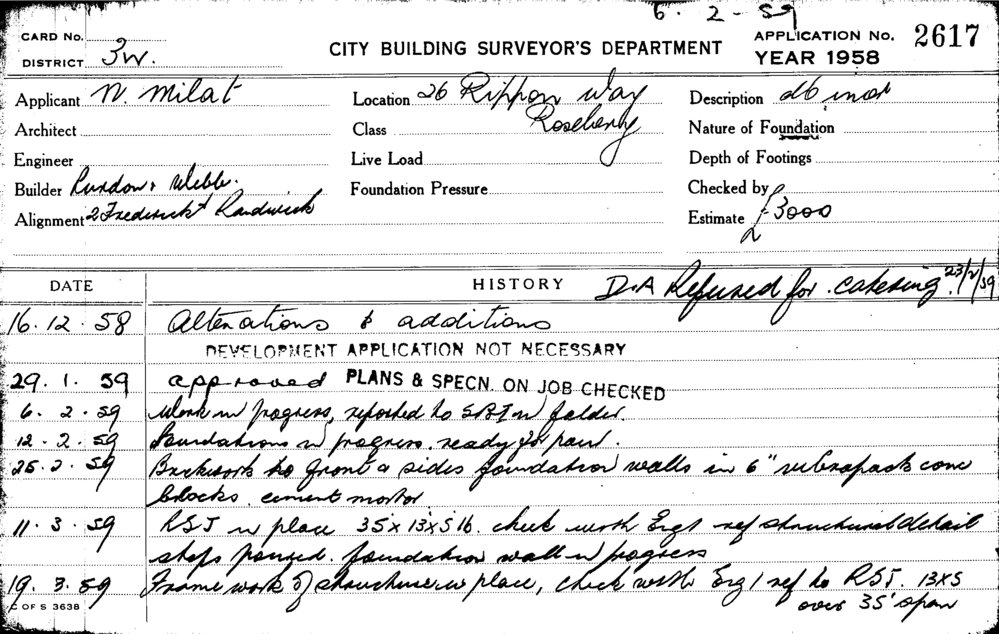 6. 2 - 59
CARD No.
DISTRICT 3W.
CITY BUILDING SURVEYOR'S DEPARTMENT
APPLICATION No. 2617
YEAR 1958
Applicant N. Milat
Location 26 Rippon Way
Roseberry
Description
Architect
Class
Nature of Foundation
Engineer
Live Load
Depth of Footings
Builder & Webb.
Foundation Pressure
Checked by
Alignment 2 Frederick St Randwick
Estimate £3000
DATE
HISTORY
D.A Refused for catering 23/2/59
16. 12. 58 Alterations & additions
DEVELOPMENT APPLICATION NOT NECESSARY
29. 1. 59 approved PLANS & SPECN. ON JOB CHECKED
6. 2. 59 Work in progress, reported to in folder.
12. 2. 59 Foundations in progress. ready for
25. 2. 59 Brickwork to front & sides foundation walls in 6" vibrapack conc
blocks. cement mortar
11. 3. 59 RSJ in place 35x13x5 lb. check with Eng ref structural detail
steps poured. foundation wall in progress
19. 3. 59 Frame work of structure in place, check with Eng / ref to RSJ. 13x5
over 35' span
C OF S 3638